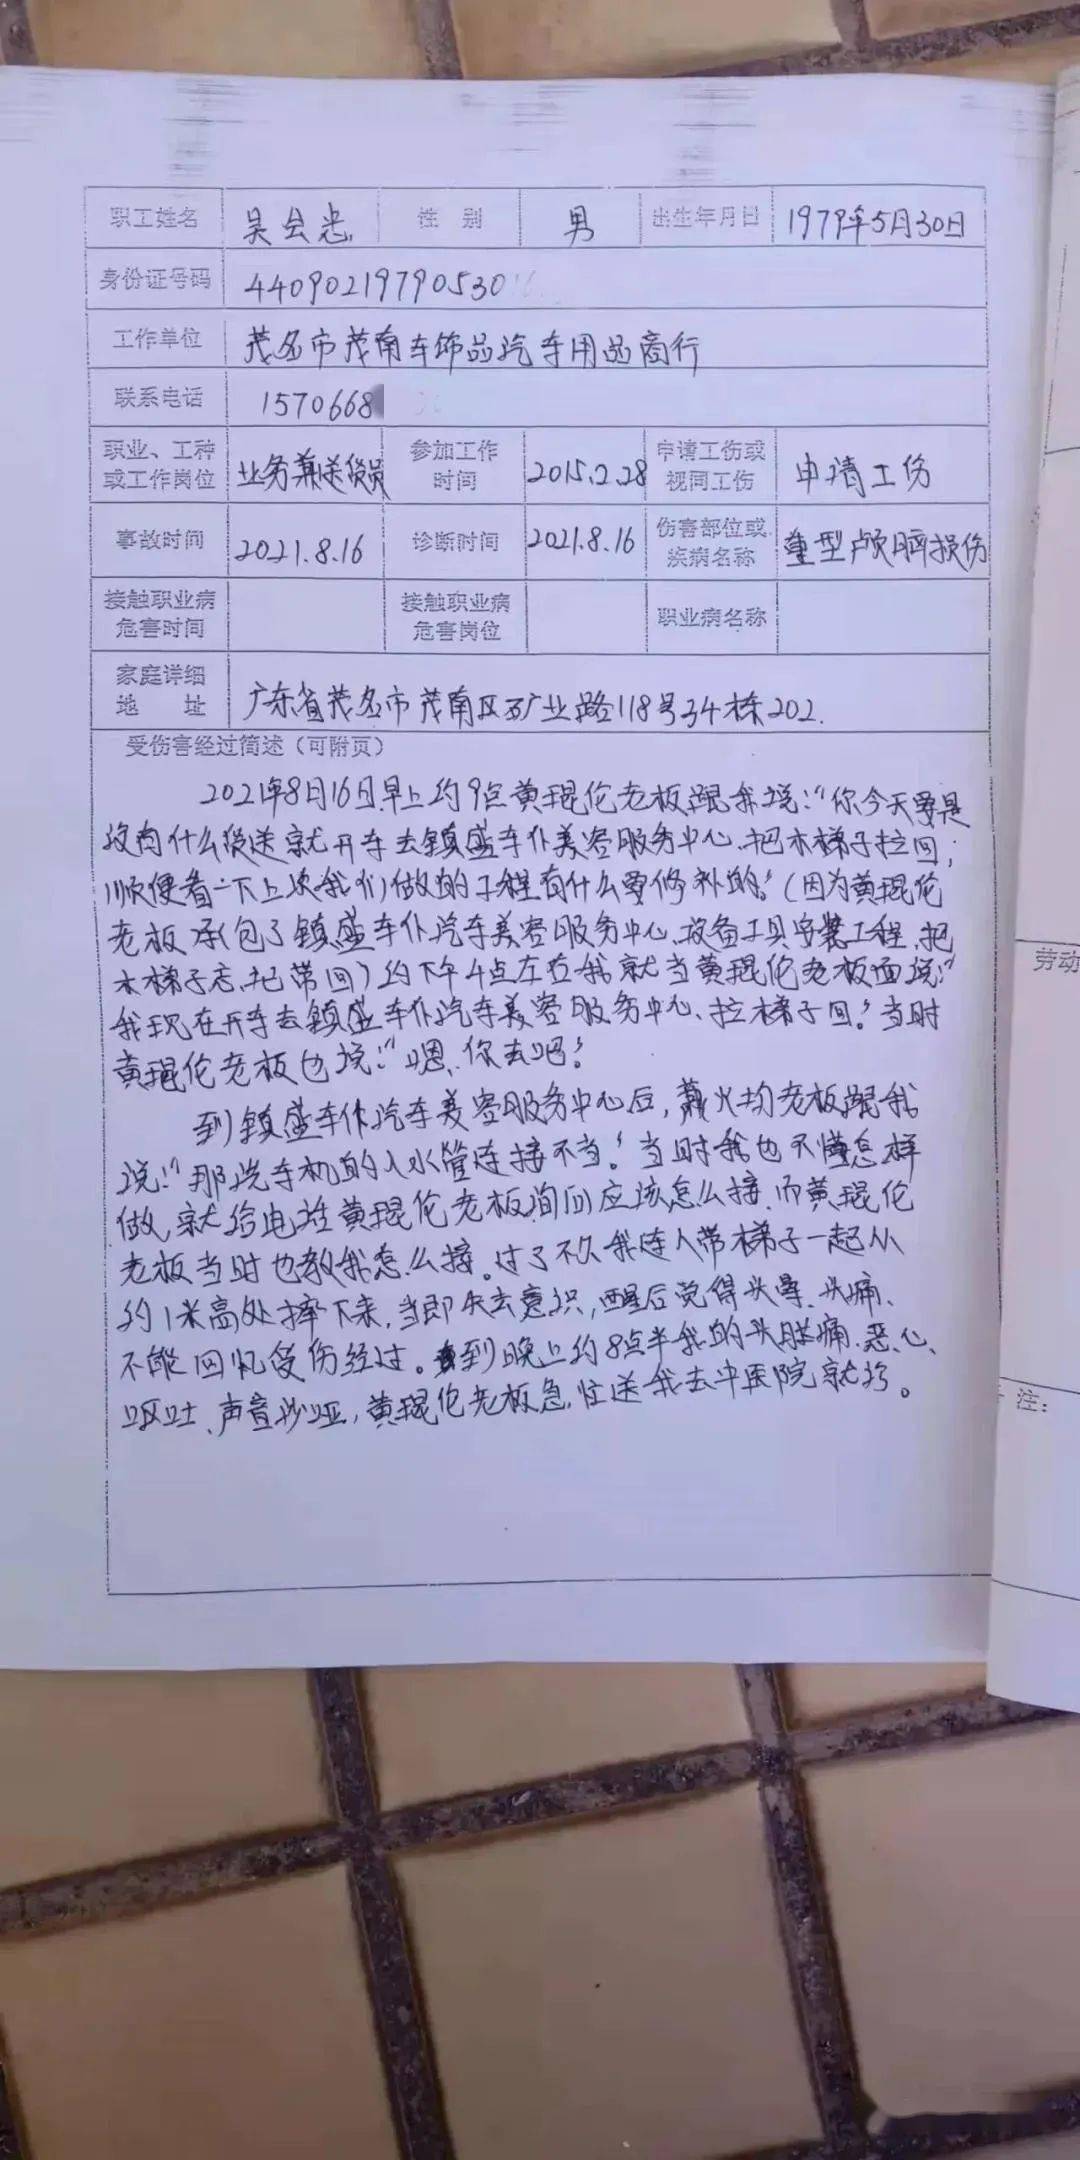 职工姓名 吴会忠 性 别 男 出生年月日 1979年5月30日
身份证号码 44090219790530
工作单位 茂名市茂南车饰品汽车用品商行
联系电话 1570668
职业、工种或工作岗位 业务兼送货员 参加工作时间 2015.2.28 申请工伤或视同工伤 申请工伤
事故时间 2021.8.16 诊断时间 2021.8.16 伤害部位或疾病名称 重型颅脑损伤
接触职业病危害时间 接触职业病危害岗位 职业病名称
家庭详细地 址 广东省茂名市茂南区矿业路118号34栋202.
受伤害经过简述（可附页）
2021年8月16日早上约9点黄琨伦老板跟我说:“你今天要是
没有什么货送就开车去镇盛车仆美容服务中心、把木梯子拉回；
顺便看一下上次我们做的工程有什么要修补的。”（因为黄琨伦
老板承包了镇盛车仆汽车美容服务中心、设备工具安装工程、把
木梯子忘记带回）约下午4点左右我就当黄琨伦老板面说:“
我现在开车去镇盛车仆汽车美容服务中心、拉梯子回。”当时
黄琨伦老板也说:“嗯、你去吧。”
到镇盛车仆汽车美容服务中心后，戴火均老板跟我
说:“那洗车机的入水管连接不当。”当时我也不懂怎样
做、就给电话黄琨伦老板询问应该怎么接、而黄琨伦
老板当时也教我怎么接。过了不久我连人带梯子一起从
约1米高处摔下来，当即失去意识，醒后觉得头晕、头痛、
不能回忆受伤经过。到晚上约8点半我的头胀痛、恶心、
呕吐、声音沙哑，黄琨伦老板急忙送我去中医院就诊。
劳动
备 注：